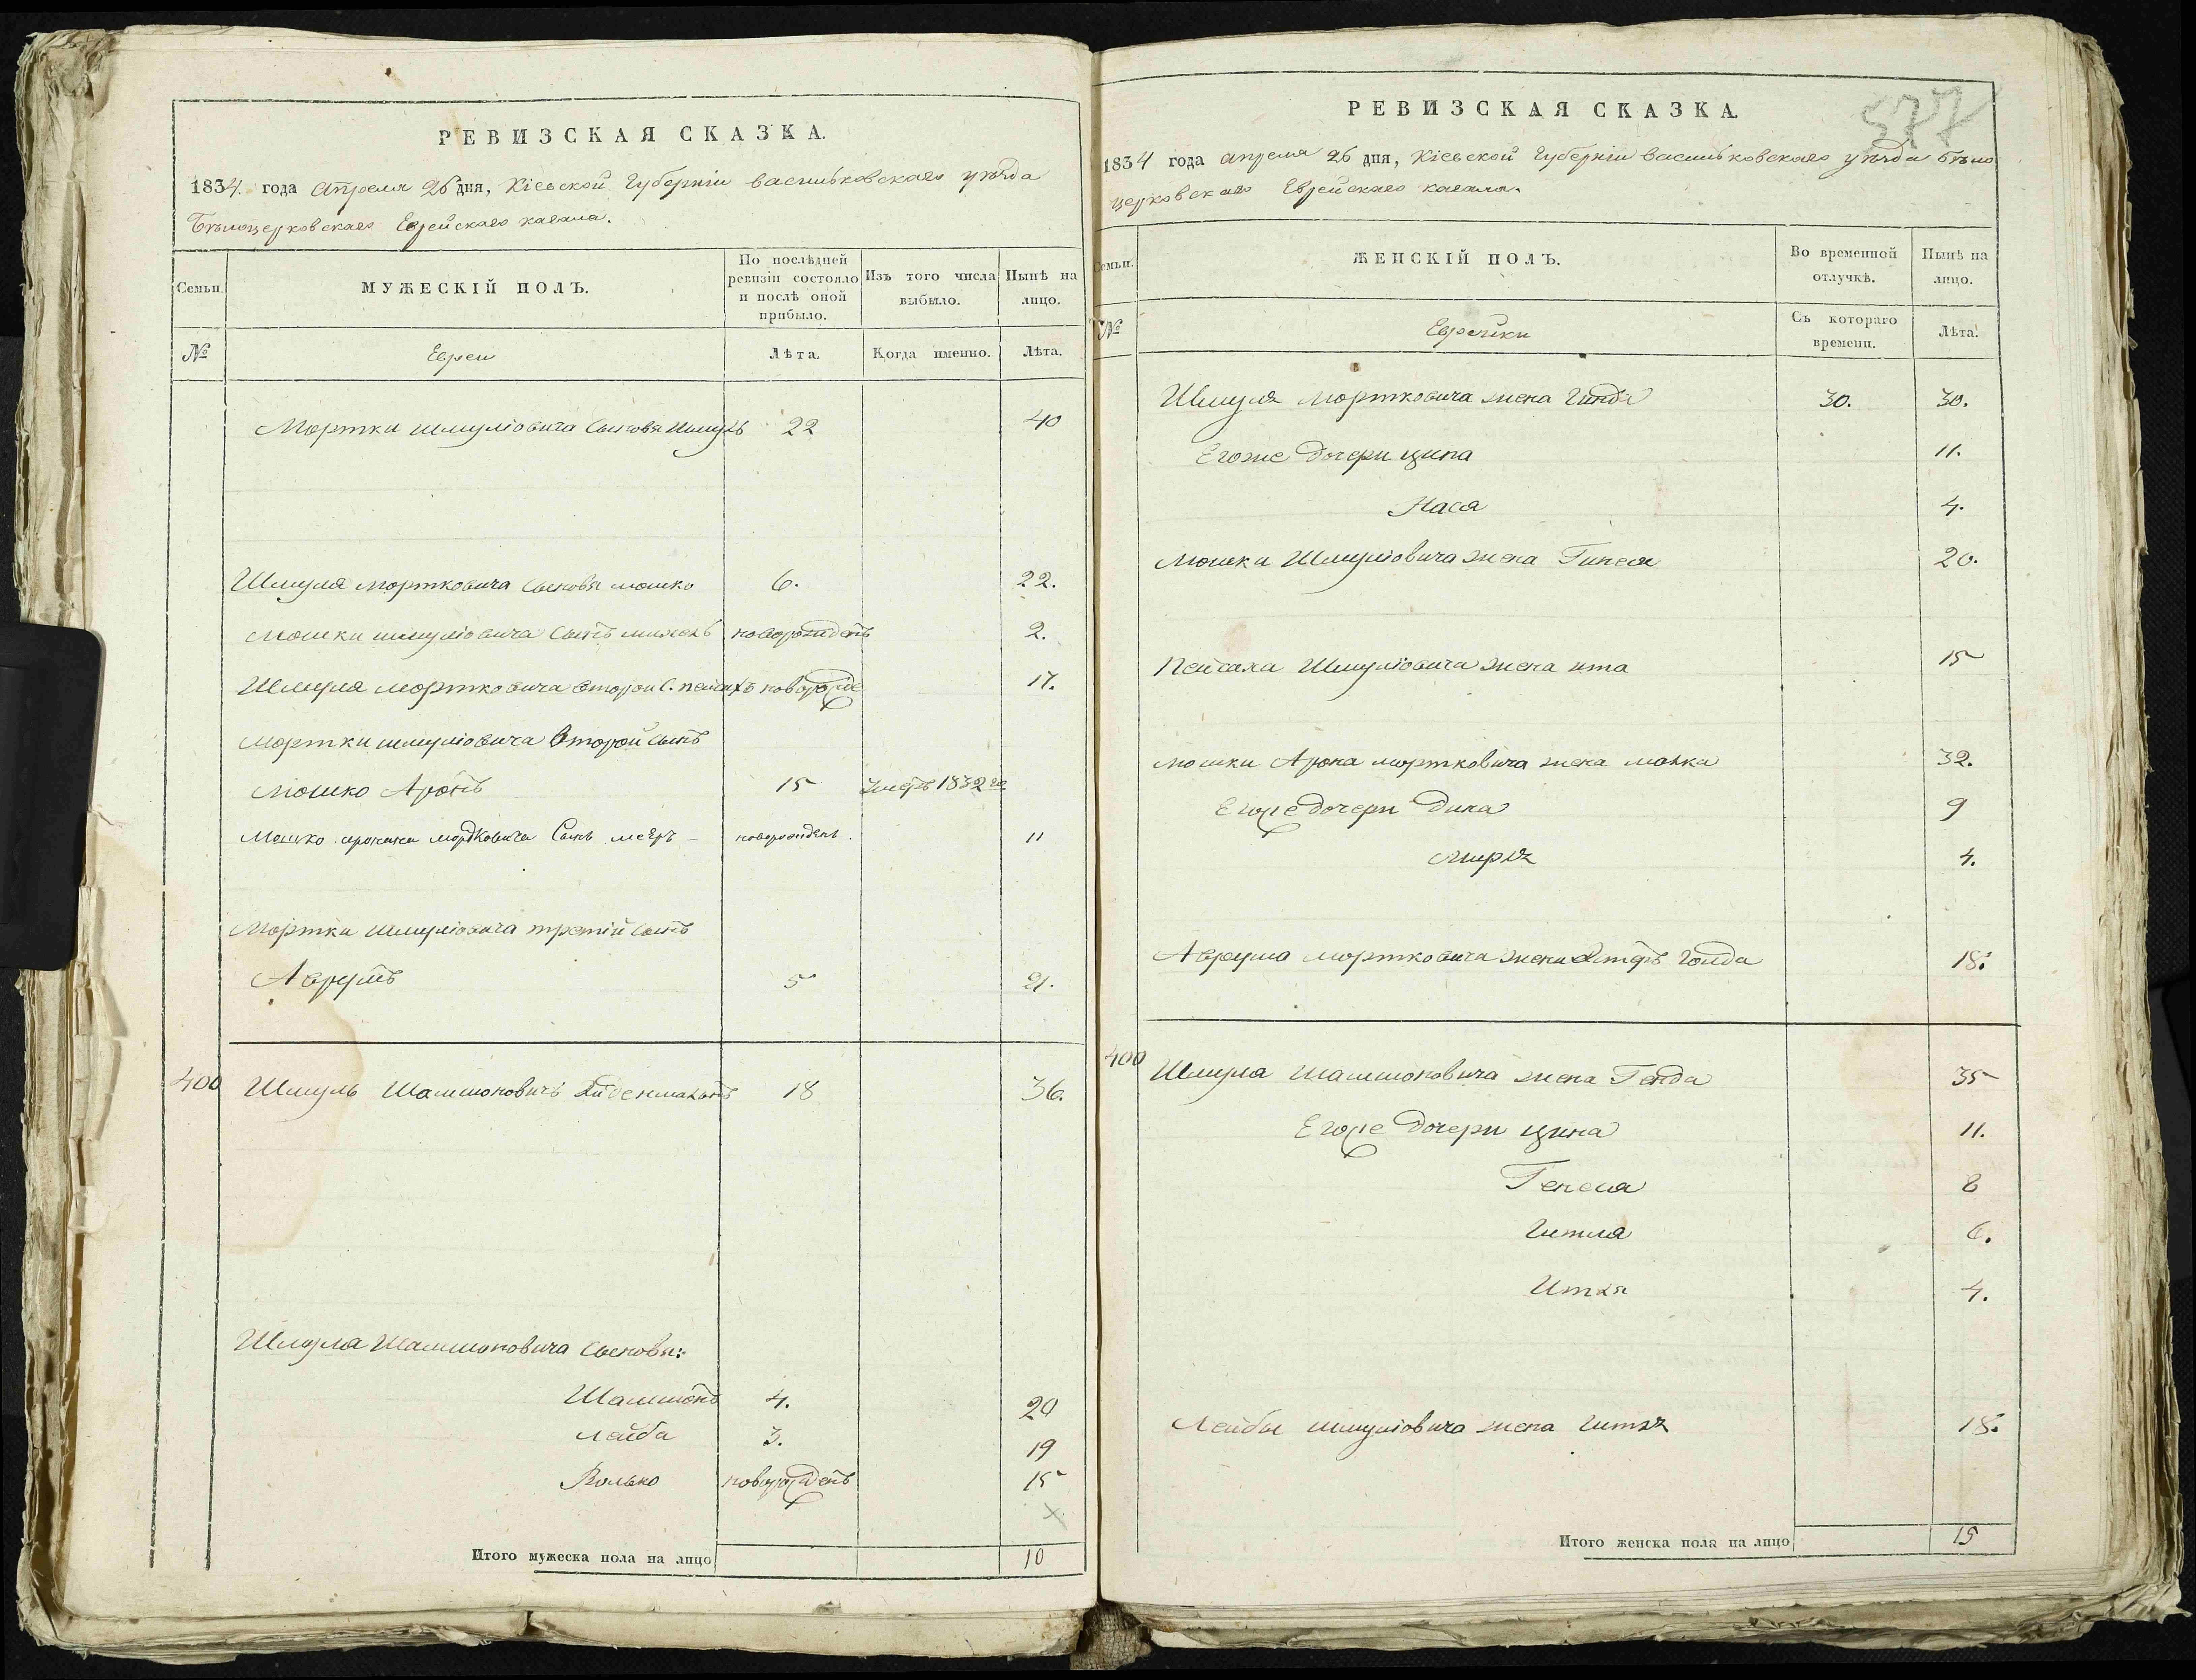 РЕВИЗСКАЯ СКАЗКА.
1834. года апреля 26 дня, Кіевской Губерніи васильковскаго уѣзда
Бѣлоцерковскаго Еврейскаго кагала.
Семьи.
МУЖЕСКІЙ ПОЛЪ.
По послѣдней ревизіи состояло и послѣ оной прибыло.
Изъ того числа выбыло.
Нынѣ на лицо.
№
Евреи
Лѣта.
Когда именно.
Лѣта.
Мортки шмуліовича сыновя Шмуль 22 40
Шмуля мортковича сыновя мошко 6. 22.
мошки шмуліовича сынъ новорожденъ 2.
Шмуля мортковича второй с. пейсахъ новорожде 17.
мортки шмуліовича второй сынъ
мошко Аронъ 15 умеръ 1832 го
Мошко мордковича Сынъ мееръ новорожденъ. 11
Мортки шмуліовича третій сынъ
Аврумъ 5 21.
400 Шмуль Шамшоновичъ 18 36.
Шмуля Шамшоновича сыновя:
Шамшонъ 4. 20
лейба 3. 19
Волько новорожденъ 15
Итого мужеска пола на лицо 10
РЕВИЗСКАЯ СКАЗКА.
577
1834 года апреля 26 дня, Кіевской Губерніи васильковскаго уѣзда бѣло
церковскаго Еврейскаго кагала.
Семьи.
ЖЕНСКІЙ ПОЛЪ.
Во временной отлучкѣ.
Нынѣ на лицо.
№
Еврейки
Съ котораго времени.
Лѣта.
Шмуля мортковича жена Гинда 30. 30.
Егоже дочери ципа 11.
Хася 4.
мошка Шмуліовича жена Гинеся 20.
пейсаха Шмуліовича жена ита 15
мошки Арона мортковича жена малка 32.
Егоже дочери Дина 9
миря 4.
Аврума мортковича жена Голда 18.
400 Шмуля шамшоновича жена Генда 35
Егоже дочери цина 11.
Генеся 8
Гитля 6.
Итля 4.
Лейбы шмуліовича жена Гитля 18.
Итого женска пола на лицо 15